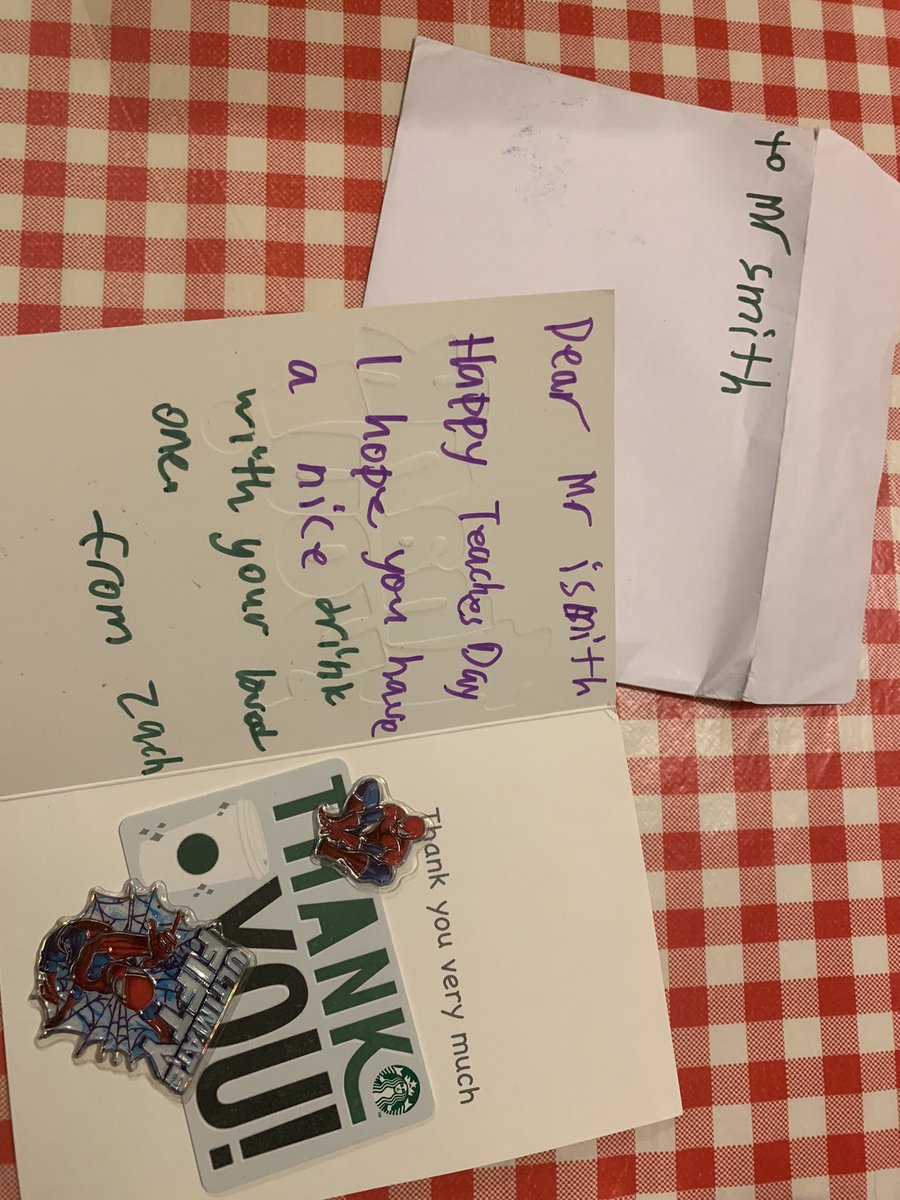 to Mr smith
Dear Mr ismith
Happy Teaches Day
I hope you have
a nice drink
with your loved
one.
from Zach
Thank you very much
THANK
YOU!
ULTIMATE